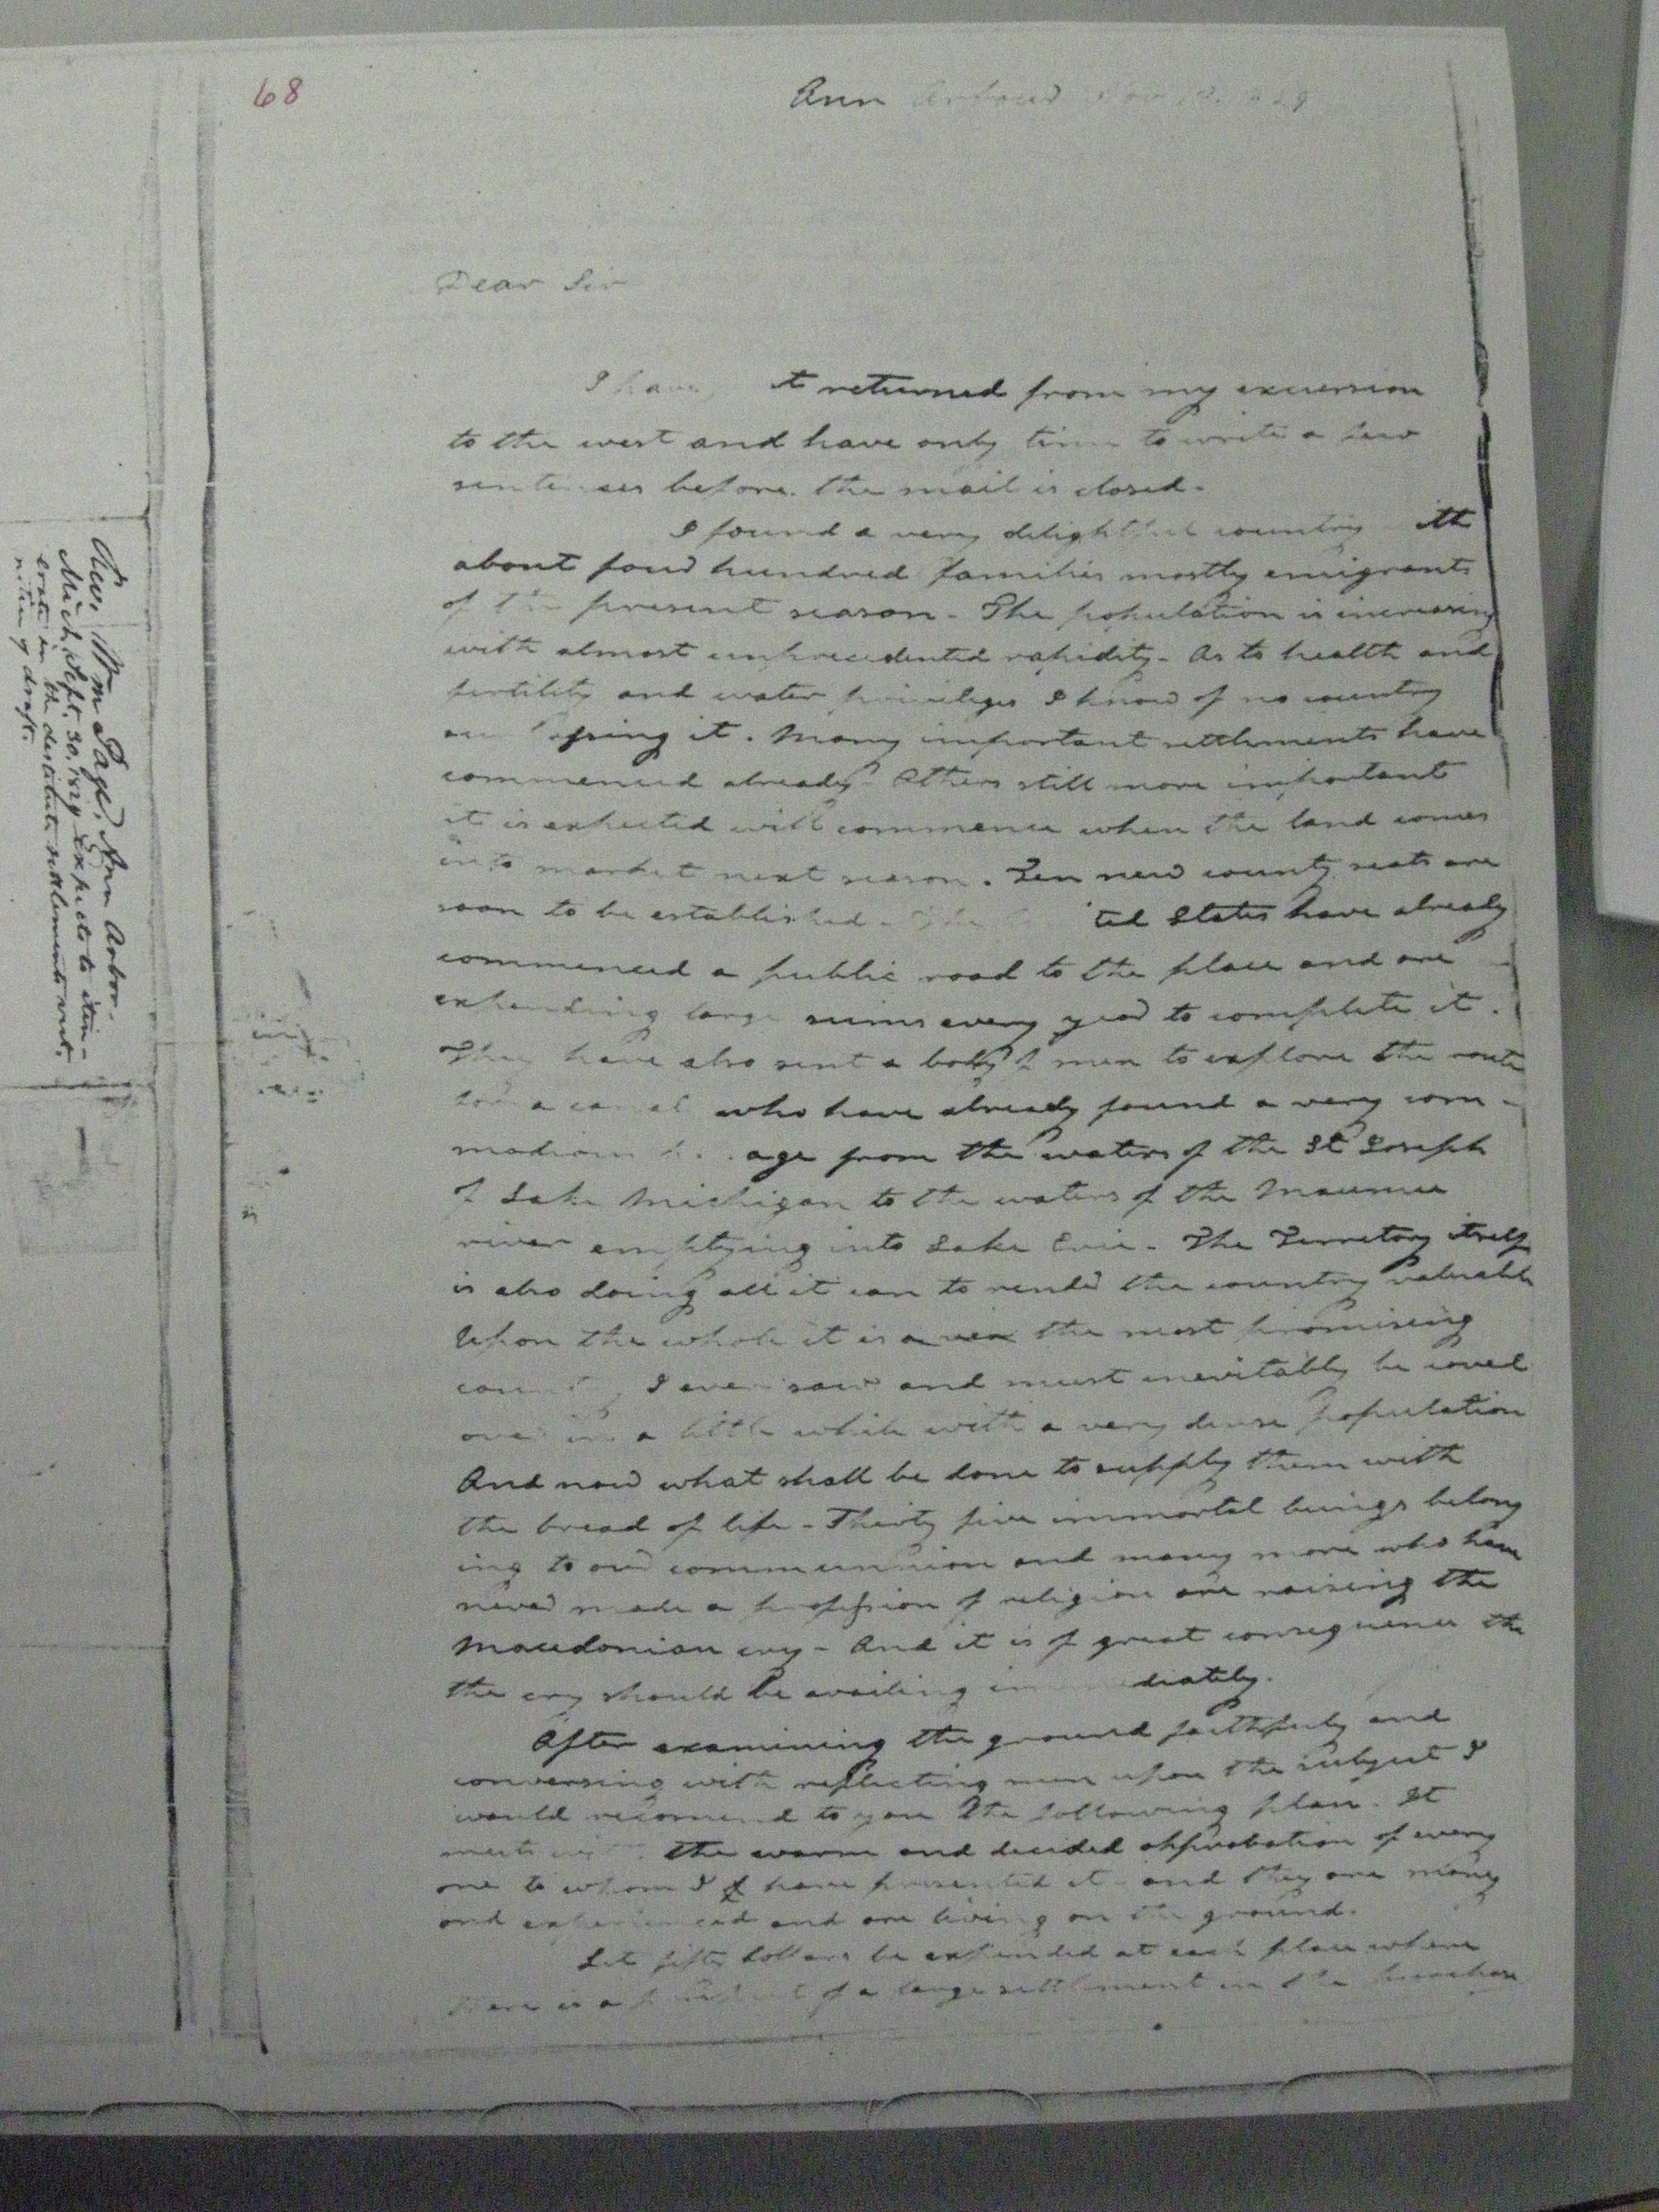 68
Ann Arbour Nov
Dear Sir
I have returned from my excursion
to the west and have only time to write a few
sentences before the mail is closed.
I found a very delightful country ith
about four hundred families mostly emigrants
of the present season - The population is increasing
with almost unprecedented rapidity - As to health and
fertility and water privileges I know of no country
it. Many important settlements have
commenced already. Others still more important
it is expected will commence when the land comes
into market next season. Ten new county seats are
soon to be established - The ted States have already
commenced a public road to the place and are
expending large sums every year to complete it.
They have also sent a body of men to explore the route
for a canal who have already found a very com-
age from the waters of the St Joseph
of Lake Michigan to the waters of the Maumee
river emptying into Lake Erie - The Territory itself
is also doing all it can to render the country valuable
Upon the whole it is the most promising
I ever saw and must inevitably be coverd
over in a little while with a very dense population
And now what shall be done to supply them with
the bread of life - Thirty five immortal beings belong
ing to our communnion and many more who have
never made a profession of religion are raising the
Macedonian cry - And it is of great consequence the
the cry should be availing immediately.
After examining the ground faithfuly and
conversing with reflecting men upon the subject I
would recomend to you the following plan. It
meets with the warm and decided approbation of every
one to whom I have presented it - and they are many
and experienced and are living on the ground.
Let fifty dollars be expended at each place where
there is a prospect of a large settlement in the purchase
Rev. Wm Page, Ann Arbor.
Mich. Sept. 30, 1829 Expects to itin-
erate in the destitute settlements west.
nition of draft.